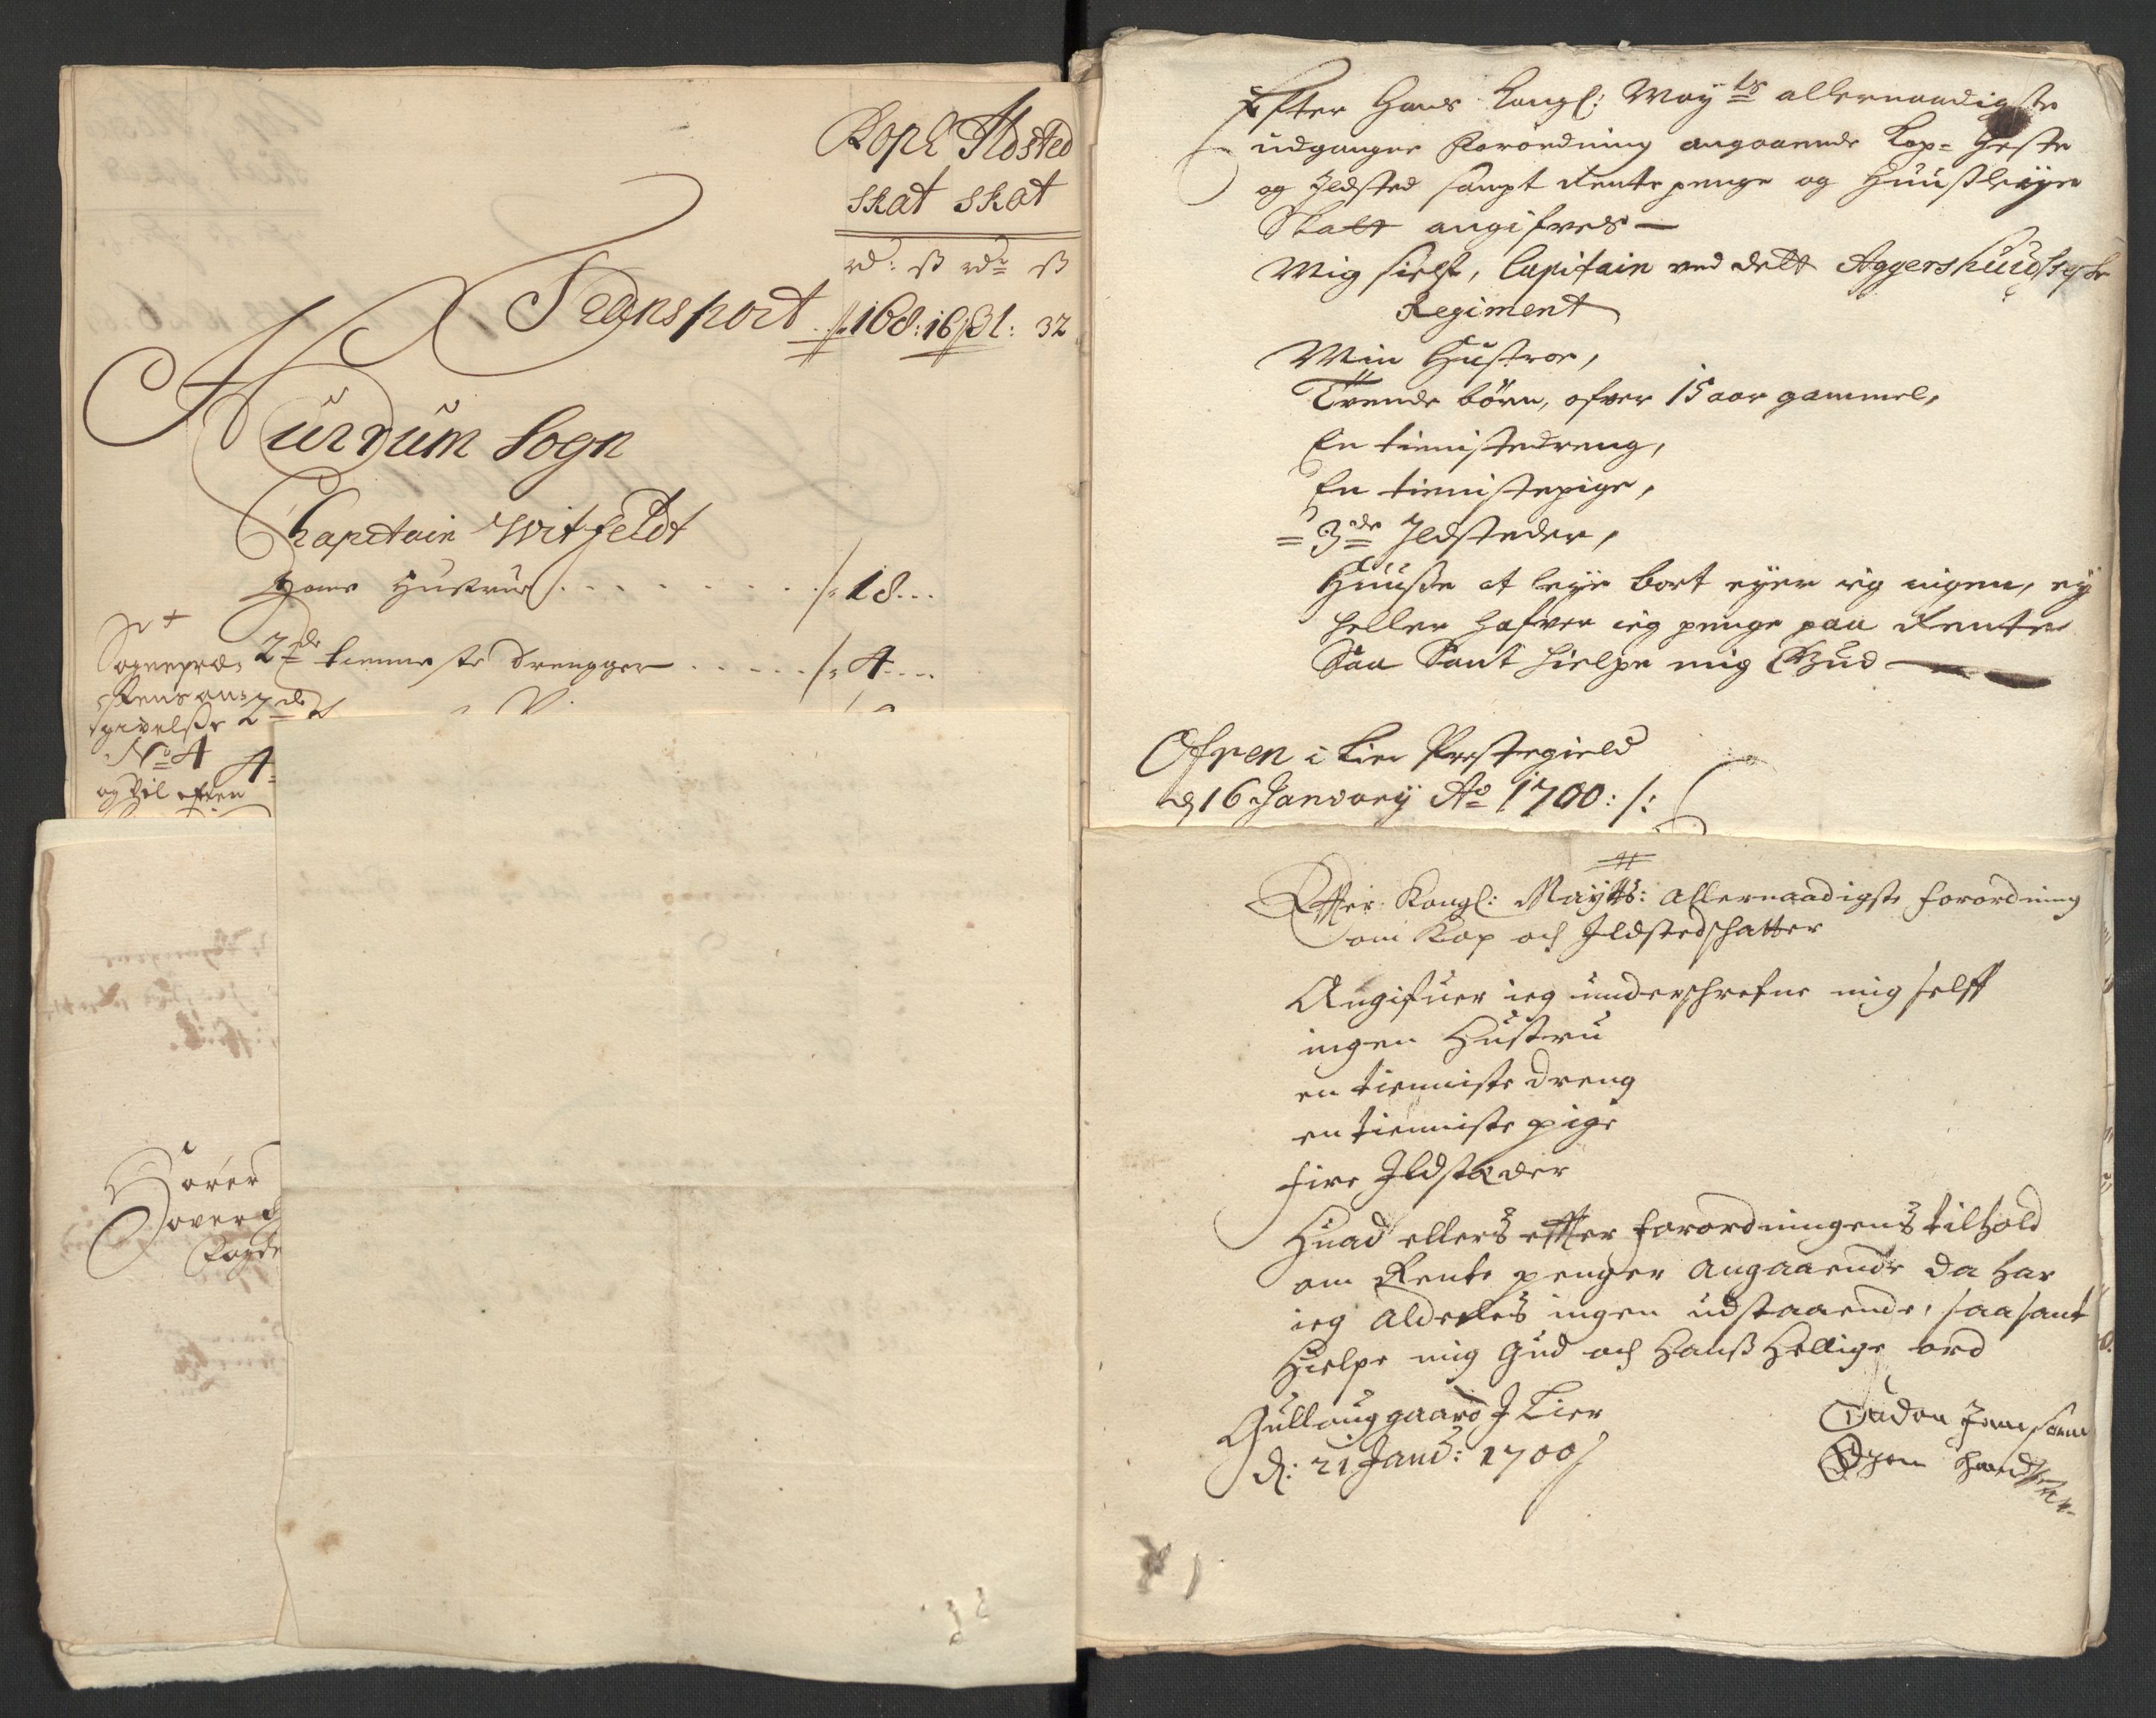 Kop & Ildsted
skat skat
rd: ß rd: ß
Transport 168: 16 ß 81: 32
Hurdum Sogn
Chapitain Witfeldt
Hans Hustrue 18
2de tienneste drengger 4
Sognepræ
stens an
givelsse 2de
No 4 4
og Vil efter
Hörer
Hover
Fogde
Efter Hans Kongl: Mayts allernaadigste
udgangne Forordning angaaende Kop- Heste
og Ildsted sampt Rentepenge og Huußleye
Skatt angifves —
Mig sielf, Capitain ved dett Aggershuußiske
Regiment
Min Hustroe,
Trende börn, ofver 15 aar gammel,
En tienistedreng,
En tienistepige,
= 3de Ildsteder,
Huuße at leye bort eyer ieg ingen, ey
heller hafver ieg penge paa Rente
Saa Sant hielpe mig Gud —
Ofren i Lier Prestegield
d 16 Janvary Ao 1700 :/:
Effter Kongl: Maytts: Allernaadigste forordning
om Kop och Ildstedschatter
Angifuer ieg underschrefne mig selff
ingen Hustru
en tienniste dreng
en tienniste pige
fire Ildstæder
Huad ellers effter forordningens tilhold
om Rente penger Angaaende da har
ieg Aldeelis ingen udstaaende, saa sant
Hielpe mig Gud och Hanß Hellige ord
Gullauggaard J Lier
d: 21 Janu: 1700
Egen Haand